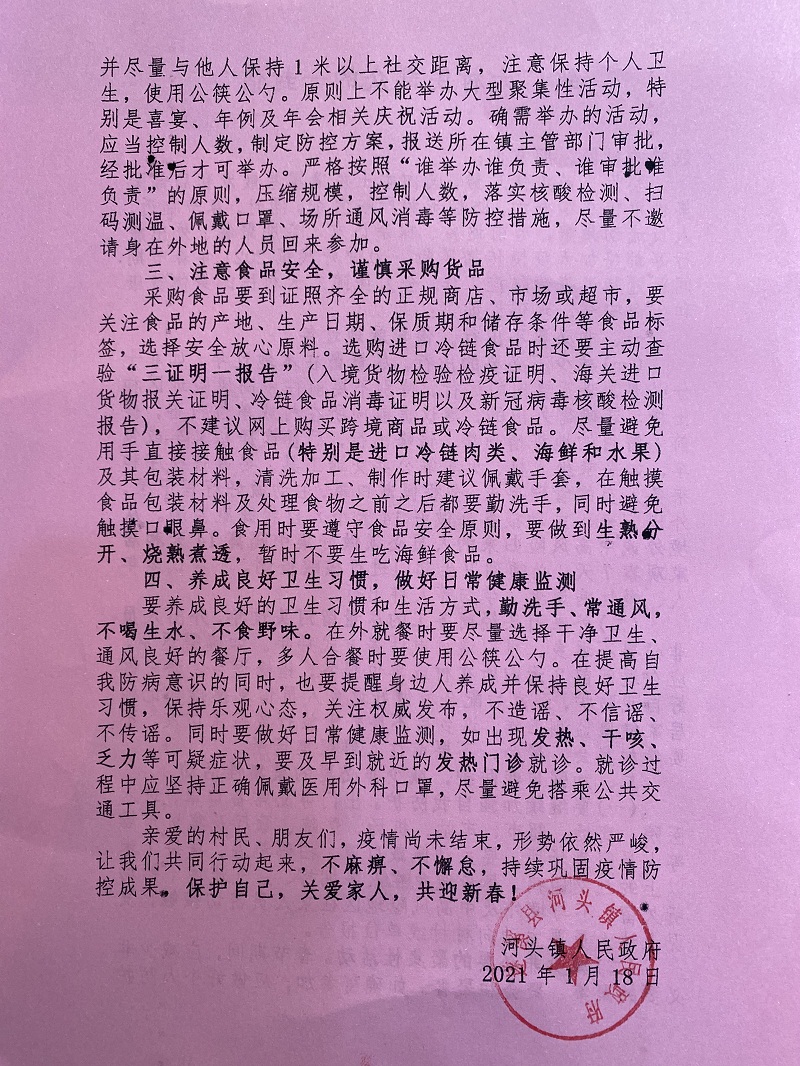 并尽量与他人保持 1 米以上社交距离，注意保持个人卫
生，使用公筷公勺。原则上不能举办大型聚集性活动，特
别是喜宴、年例及年会相关庆祝活动。确需举办的活动，
应当控制人数，制定防控方案，报送所在镇主管部门审批，
经批准后才可举办。严格按照“谁举办谁负责、谁审批谁
负责”的原则，压缩规模，控制人数，落实核酸检测、扫
码测温、佩戴口罩、场所通风消毒等防控措施，尽量不邀
请身在外地的人员回来参加。
三、注意食品安全，谨慎采购货品
采购食品要到证照齐全的正规商店、市场或超市，要
关注食品的产地、生产日期、保质期和储存条件等食品标
签，选择安全放心原料。选购进口冷链食品时还要主动查
验“三证明一报告”（入境货物检验检疫证明、海关进口
货物报关证明、冷链食品消毒证明以及新冠病毒核酸检测
报告），不建议网上购买跨境商品或冷链食品。尽量避免
用手直接接触食品（特别是进口冷链肉类、海鲜和水果）
及其包装材料，清洗加工、制作时建议佩戴手套，在触摸
食品包装材料及处理食物之前之后都要勤洗手，同时避免
触摸口眼鼻。食用时要遵守食品安全原则，要做到生熟分
开、烧熟煮透，暂时不要生吃海鲜食品。
四、养成良好卫生习惯，做好日常健康监测
要养成良好的卫生习惯和生活方式，勤洗手、常通风，
不喝生水、不食野味。在外就餐时要尽量选择干净卫生、
通风良好的餐厅，多人合餐时要使用公筷公勺。在提高自
我防病意识的同时，也要提醒身边人养成并保持良好卫生
习惯，保持乐观心态，关注权威发布，不造谣、不信谣、
不传谣。同时要做好日常健康监测，如出现发热、干咳、
乏力等可疑症状，要及早到就近的发热门诊就诊。就诊过
程中应坚持正确佩戴医用外科口罩，尽量避免搭乘公共交
通工具。
亲爱的村民、朋友们，疫情尚未结束，形势依然严峻，
让我们共同行动起来，不麻痹、不懈怠，持续巩固疫情防
控成果。保护自己，关爱家人，共迎新春！
河头镇人民政府
2021 年 1 月 18 日